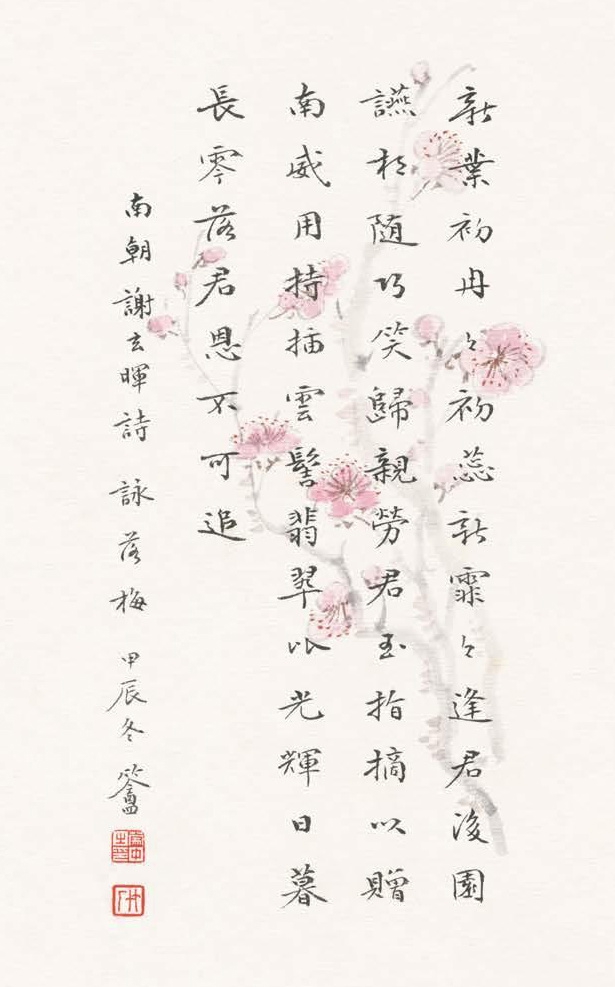 新葉初冉々初蕊新霏々逢君後園
讌相隨巧笑歸親勞君玉指摘以贈
南威用持插雲髻翡翠比光輝日暮
長零落君恩不可追
南朝謝玄暉詩 詠落梅 甲辰冬